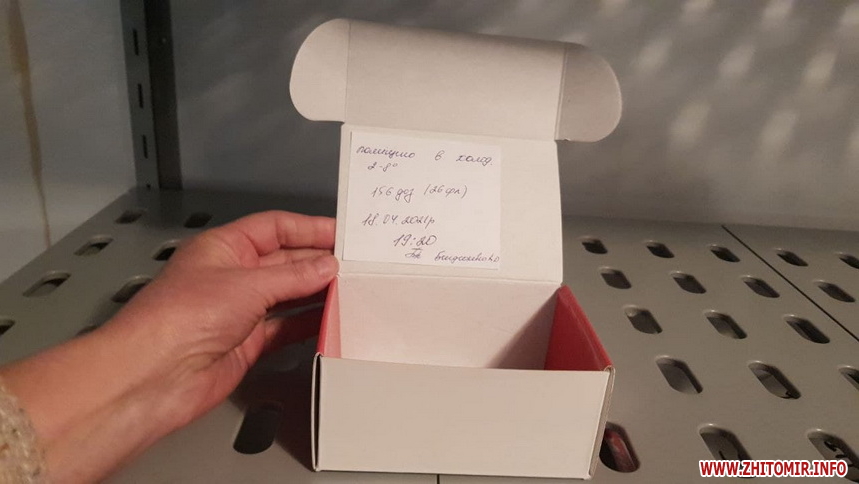 в холод.
2-8°
156 доз (26 фл)
18.04.2021р
19:20
WWW.ZHITOMIR.INFO